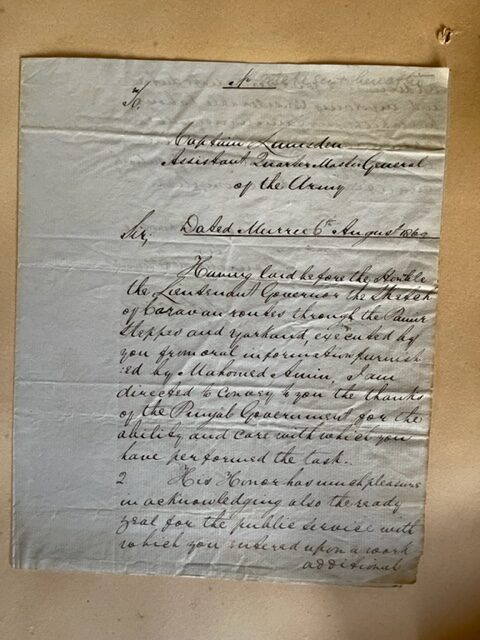 No
To.
Captain Lumsden
Assistant Quarter Master General
of the Army
Sir, Dated Murree 6th August 186
Having laid before the Honble
the Lieutenant Governor the Sketch
of Caravan routes through the Pamir
Steppes and Yarkand, executed by
you from oral information furnish
ed by Mahomed Amin, I am
directed to convey to you the thanks
of the Punjab Government for the
ability and care with which you
have performed the task.
2 His Honor has much pleasure
in acknowledging also the ready
zeal for the public service with
which you entered upon a work
additional